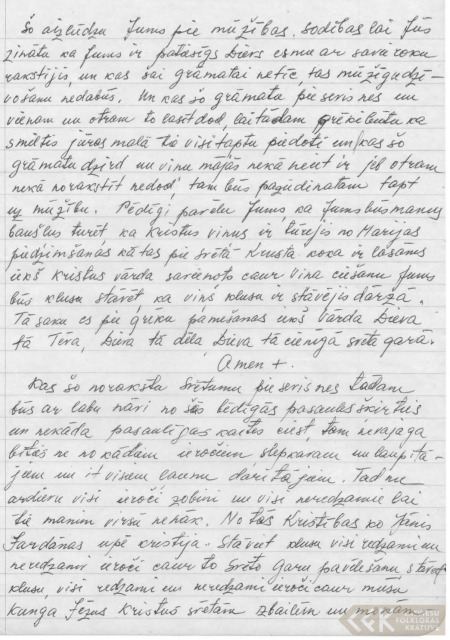 Šo aizlūdzu Jums pie mūžības, sodības lai Jūs
zinātu ka Jums ir patiesīgs Dievs esmu ar savu roku
rakstijis, un kas šai grāmatai netic, tas mūžīgu dzī-
vošanu nedabūs. Un kas šo grāmatu pie sevis nes un
vienam un otram to lasīt dod, lai tādam grēki būtu kā
smiltis jūras malā tie visi taptu piedoti un kas šo
grāmatu dzird un viņu mājās nekā neiet ir jel otram
nekā norakstīt nedod, tam būs pazudinātam tapt
uz mūžību. Pēdīgi pavēlu Jums, ka Jums būs manus
baušļus turēt, kā Kristus viņus ir turējis no Marijas
piedzimšanas kā tas pie svētā Krusta koka ir lasāms
iekš Kristus vārda savienots caur viņa ciešanu Jums
būs klusu stāvēt, kā viņš klusu ir stāvējis dārzā.
Tā saku es pie grēku pamešanas iekš Vārda Dieva
tā Tēva, Dieva tā dēla, Dieva tā cienīgā svētā gara.
Amen +.
Kas šo norakstu svētumu pie sevis nes tādam
būs ar labu nāvi no šās bēdīgās pasaules šķirties
un nekāda pasaulīgas kaites ciest, tam nevajaga
bīties ne no kādām ieročiem slepkavām un laupītā-
jiem un it visiem ļaunu darītājiem. Tad nu
ardievu visi ieroči zobini un visi neredzamie lai
tie manim virsū nenāk. No tās Kristības ko Jānis
Jardānas upē kristīja. Stāviet klusu visi redzami un
neredzami ieroči caur to svēto garu pavēlēšanu stāviet
klusu, visi redzami un neredzami ieroči caur mūsu
kunga Jēzus Kristus svētām izbailēm un mokām.
CĒSU
FOLKLORAS
KRĀTUVE